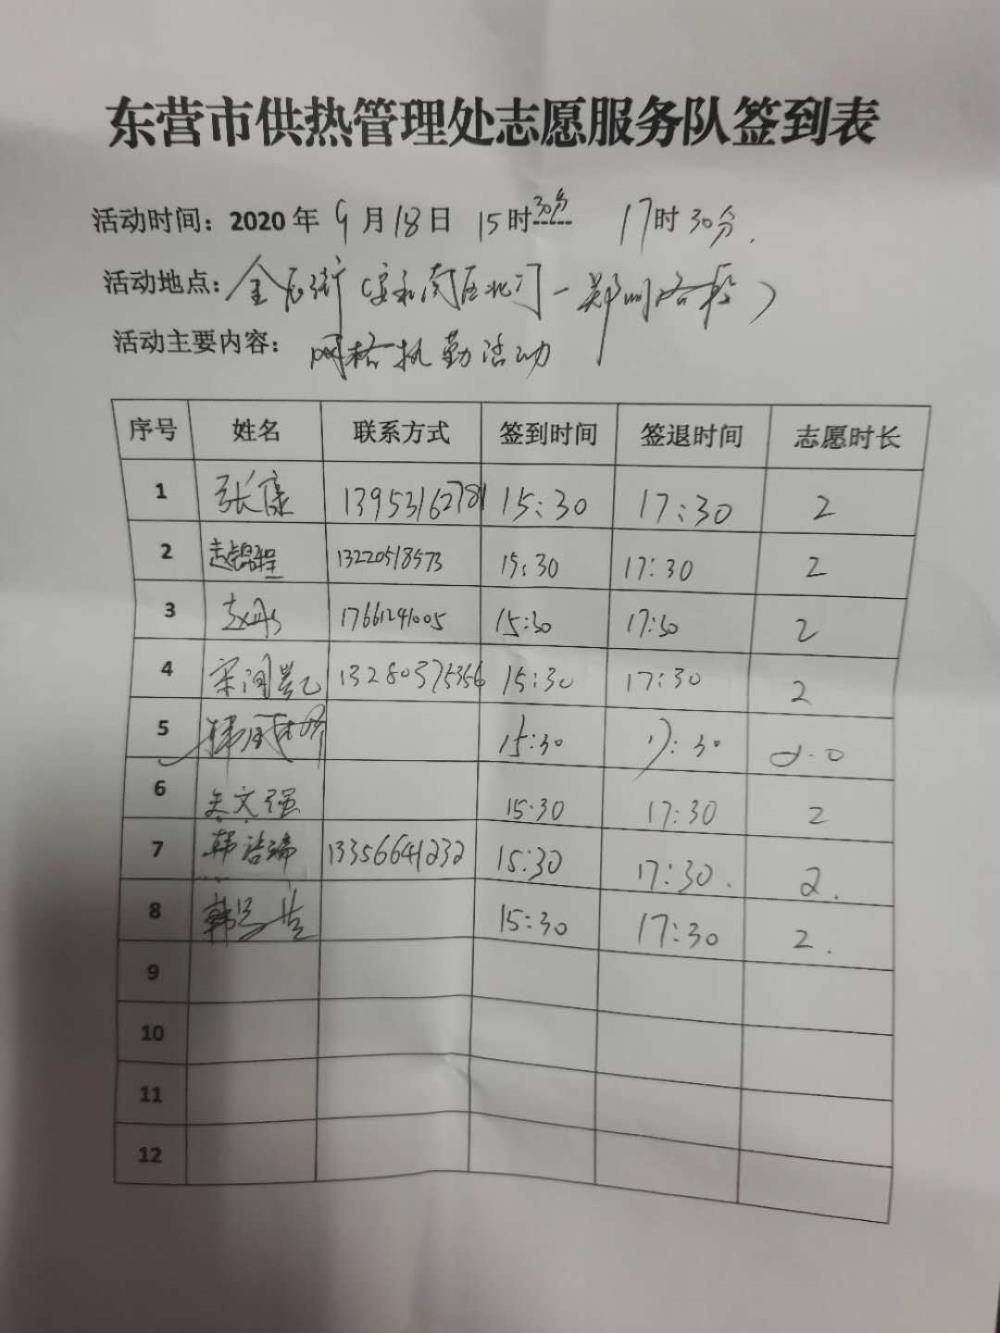 东营市供热管理处志愿服务队签到表
活动时间：2020 年 9 月 18 日 15 时 30分 17 时 30分.
活动地点：金辰街（安和南区北门－郑州路段）
活动主要内容： 网格执勤活动
序号 姓名 联系方式 签到时间 签退时间 志愿时长
1 张康 13953162781 15:30 17:30 2
2 赵锦程 13220518573 15:30 17:30 2
3 赵彤 17661241005 15:30 17:30 2
4 宋润 13280375356 15:30 17:30 2
5 韩 15:30 17:30 2.0
6 文强 15:30 17:30 2
7 韩浩瑞 13356641232 15:30 17:30. 2.
8 韩 15:30 17:30 2.
9
10
11
12